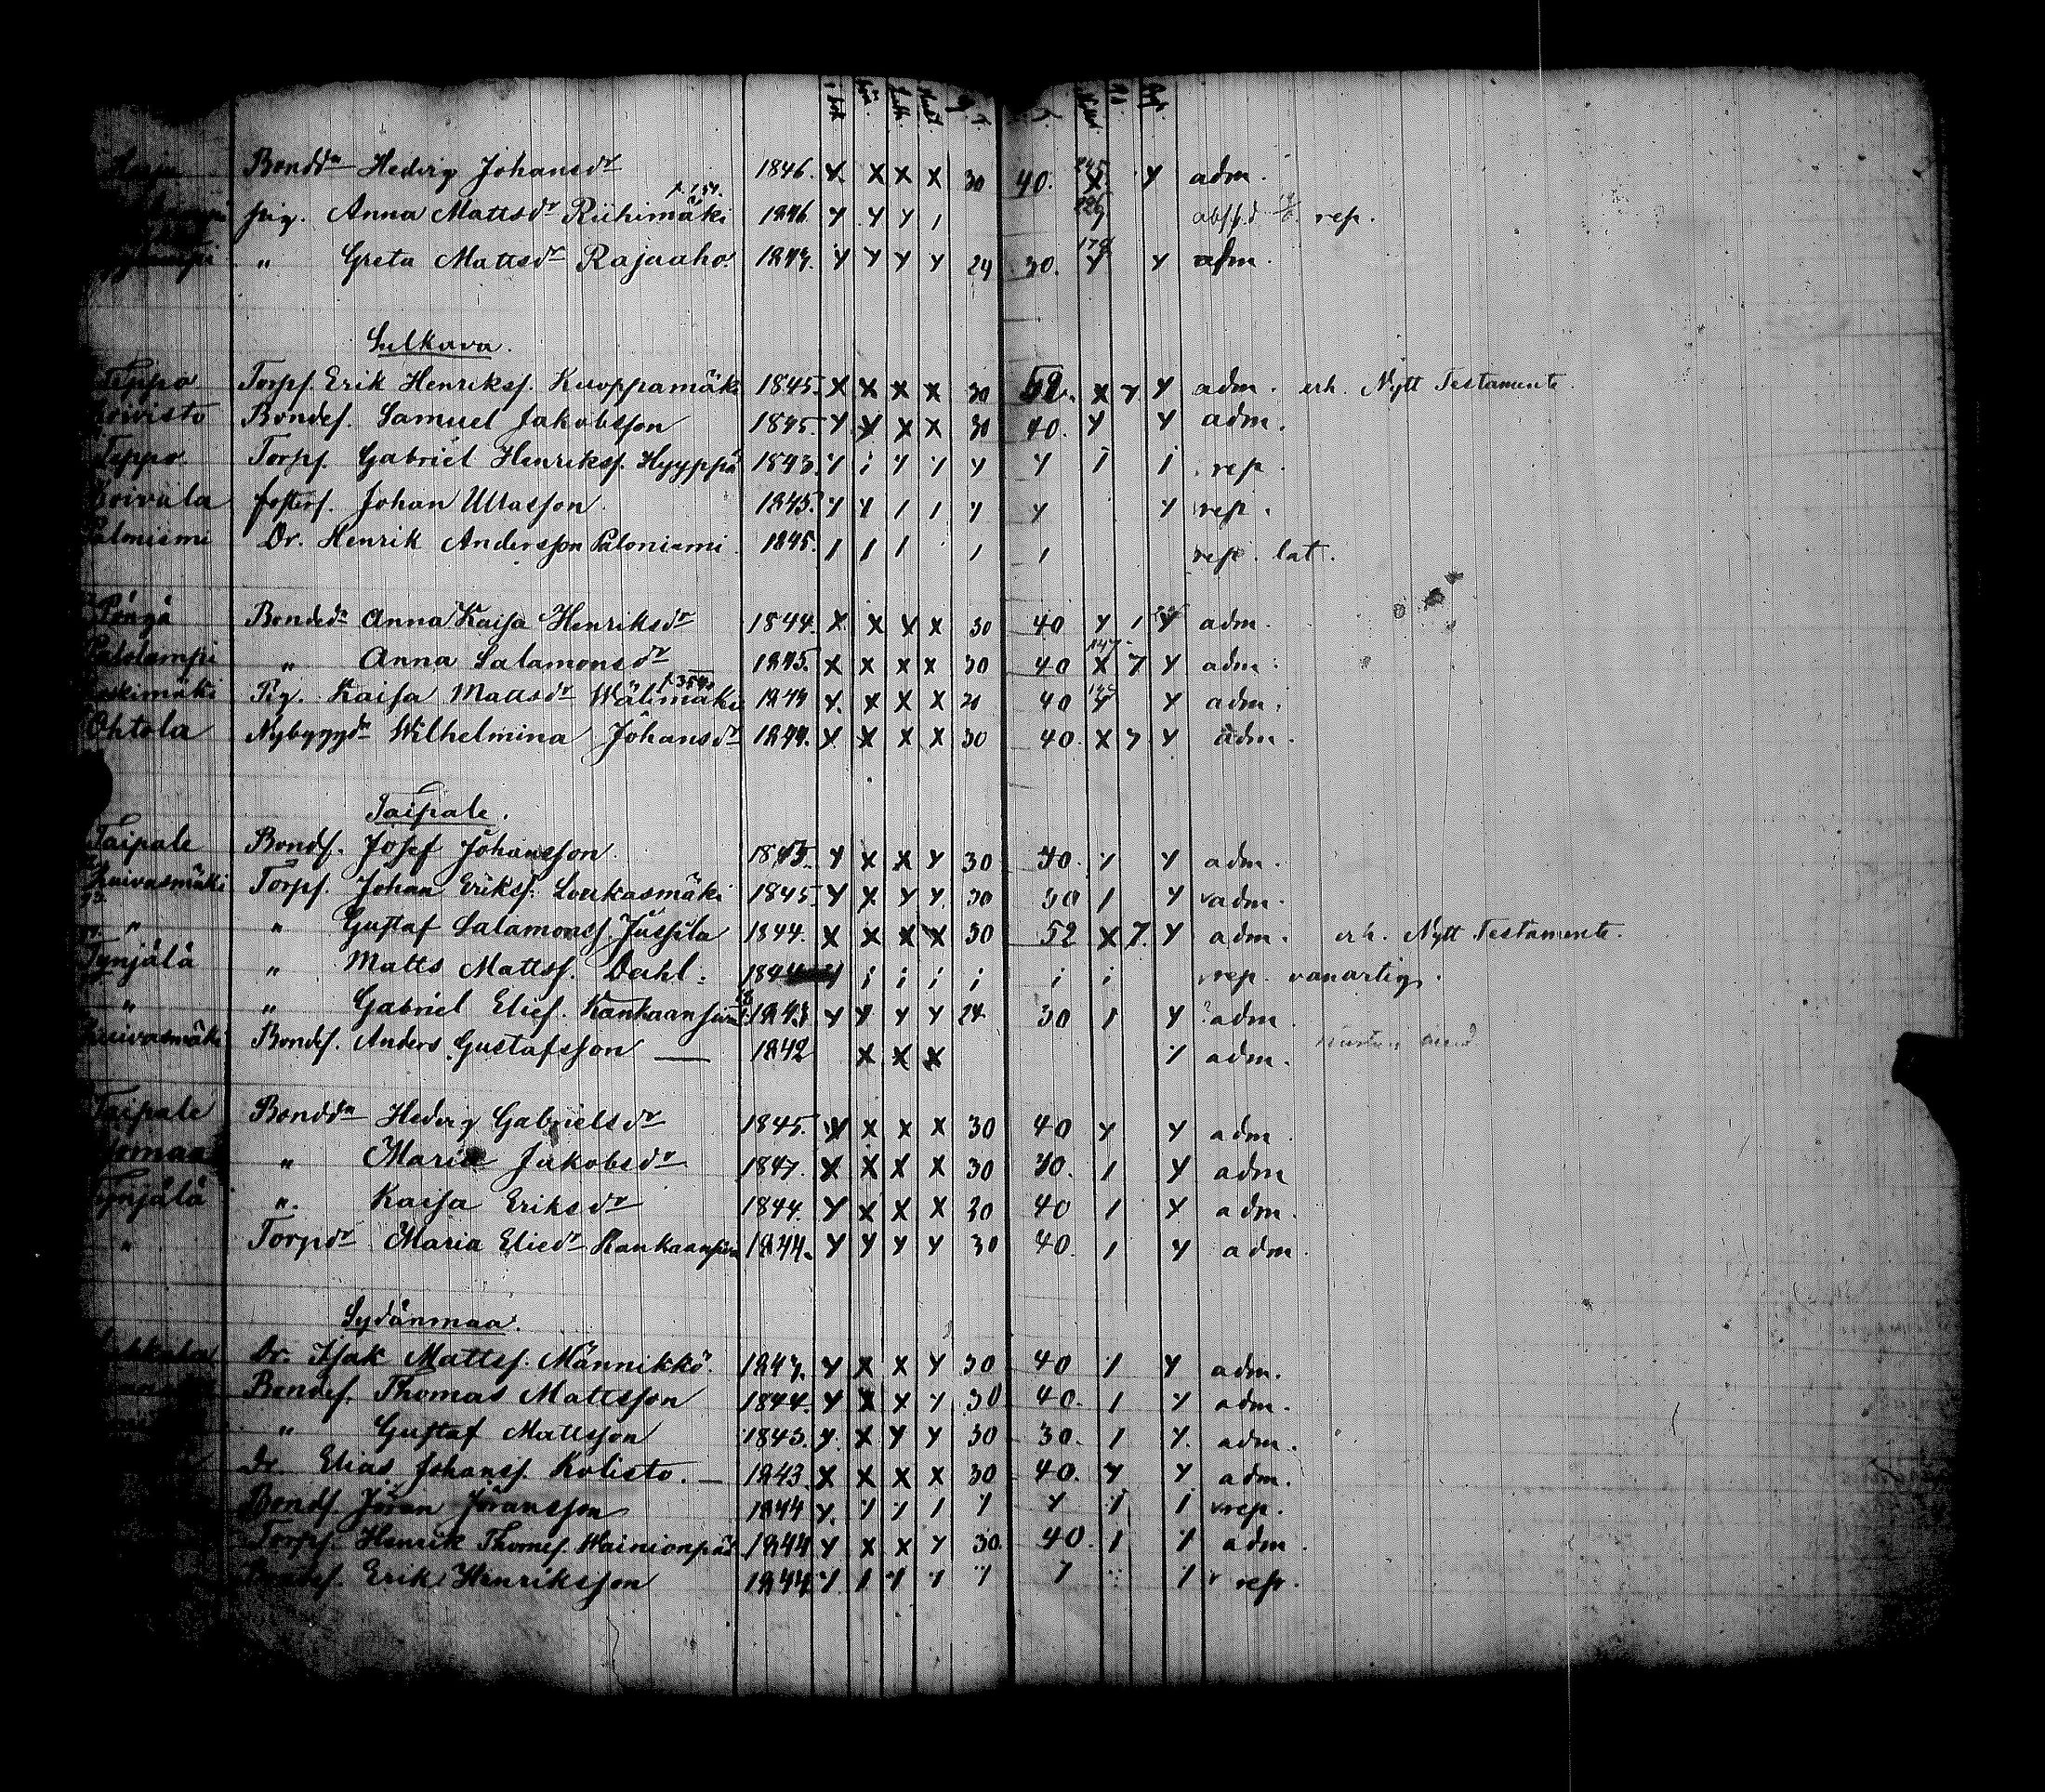 Bondd:n Hedvig Johansd:r 1846. X X X X 30 40. 245 X Y adm.
pig. Anna Mattsd:r Riihimäki 1846 Y Y Y 1 rep.
" Greta Mattsd:r Rajaaho. 1843. Y Y Y Y 24 30. 178 Y Y adm.
Sulkava.
Teppo Torpf. Erik Henriksf. Kuoppamäki 1845. X X X X 30 52. X 7 Y adm. erh. Nytt Testamente.
Koivisto Bondef. Samuel Jakobsson 1845. Y Y X X 30 40. Y Y adm.
Teppo Torpf. Gabriel Henriksf. Hyyppä 1843. Y i Y Y Y Y i i rep.
Koivula fosterf. Johan Ullasson 1845. Y Y 1 1 Y Y Y rep.
Paloniemi Dr. Henrik Andersson Paloniemi 1845. 1 1 1 1 1 rep. lat.
Pöngä Bonded:r Anna Kaisa Henriksd:r 1844. X X Y X 30 40 Y 1 Y adm.
Patolampi " Anna Salamonsd:r 1845. X X X X 30 40 147 X 7 Y adm.
Pig. Kaisa Mattsd:r Wälimäki 1844 Y. X X X 20 40 Y Y adm.
Ohtola Nybyggd:r Wilhelmina Johansd:r 1844. Y X X X 30 40. X 7 Y adm.
Taipale.
Taipale Bondf. Josef Johansson. 1845. Y X X Y 30 40. Y Y adm.
Kuivasmäki Torpf. Johan Eriksf. Loukasmäki 1845. Y X Y Y 30 30 1 Y adm.
" " Gustaf Salamonsf. Jussila 1844. X X X X 30 52 X 7. Y adm. erh. Nytt Testamente.
Tynjälä " Matts Mattsf. Dahl. 1844 i i i i i i rep. vanartig.
" " Gabriel Elief. Kankaansivu 1843 Y Y Y Y 24 30 1 Y adm.
Kuivasmäki Bondef. Anders Gustafsson — 1842 X X X Y adm.
Taipale Bondd:n Hedvig Gabrielsd:r 1845. X X X X 30 40 Y Y adm.
" Maria Jakobsd:r 1847. X X X X 30 30. 1 Y adm
Tynjälä " Kaisa Eriksd:r 1844. Y X X X 30 40 1 Y adm.
" Torpd:r Maria Elied:r Kankaansivu 1844. Y Y Y Y 30 40. 1 Y adm.
Sydänmaa.
Dr. Isak Mattsf. Männikkö. 1843. Y X X Y 30 40 1 Y adm.
Bondef. Thomas Mattsson 1844. Y X X Y 30 40. 1 Y adm.
" Gustaf Mattsson 1843. Y. X Y Y 30 30. 1 Y. adm.
Dr. Elias Johansf. Kolisto. — 1843. X X X X 30 40. Y Y adm.
Bondf. Jöran Jöransson 1844 Y. 1 1 1 1 Y 1 1 rep.
Torpf. Henrik Thomsf. Wainionpää 1844 Y X X Y 30. 40. 1 1 adm.
Bondef. Erik Henriksson 1844 1 1 1 1 1 1 1 rep.